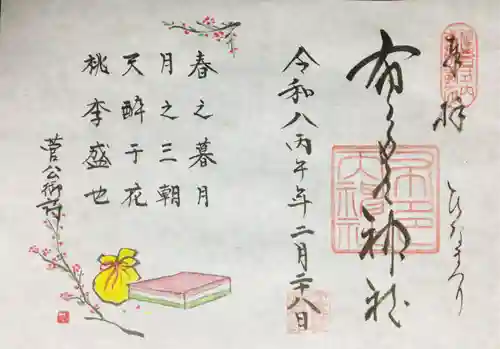 奉拝
ひなまつり
布多天神社
布多天神社
令和八丙午年二月二十八日
春之暮月
月之三朝
天酔于花
桃李盛也
菅公御詩